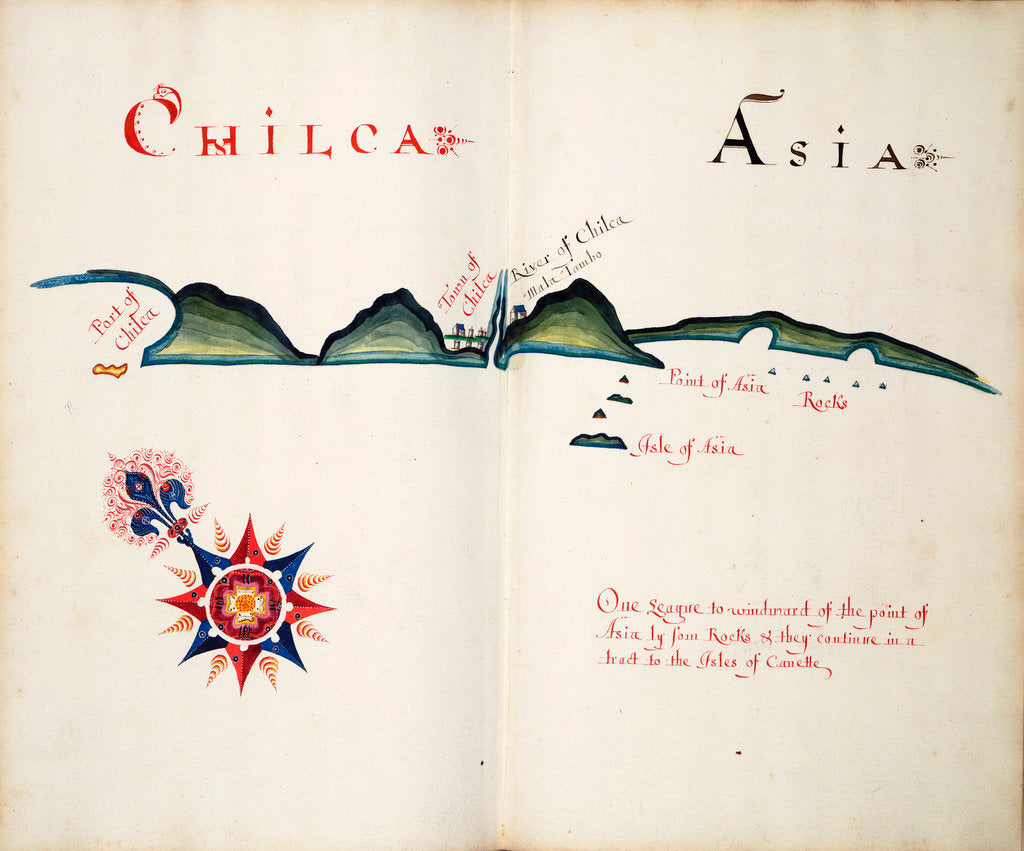 Chilca
Asia
Port of
Chilca
Town of
Chilca
River of Chilca
Mala Tambo
Point of Asia
Rocks
Isle of Asia
One League to windward of the point of
Asia ly som Rocks & they continue in a
tract to the Isles of Canette